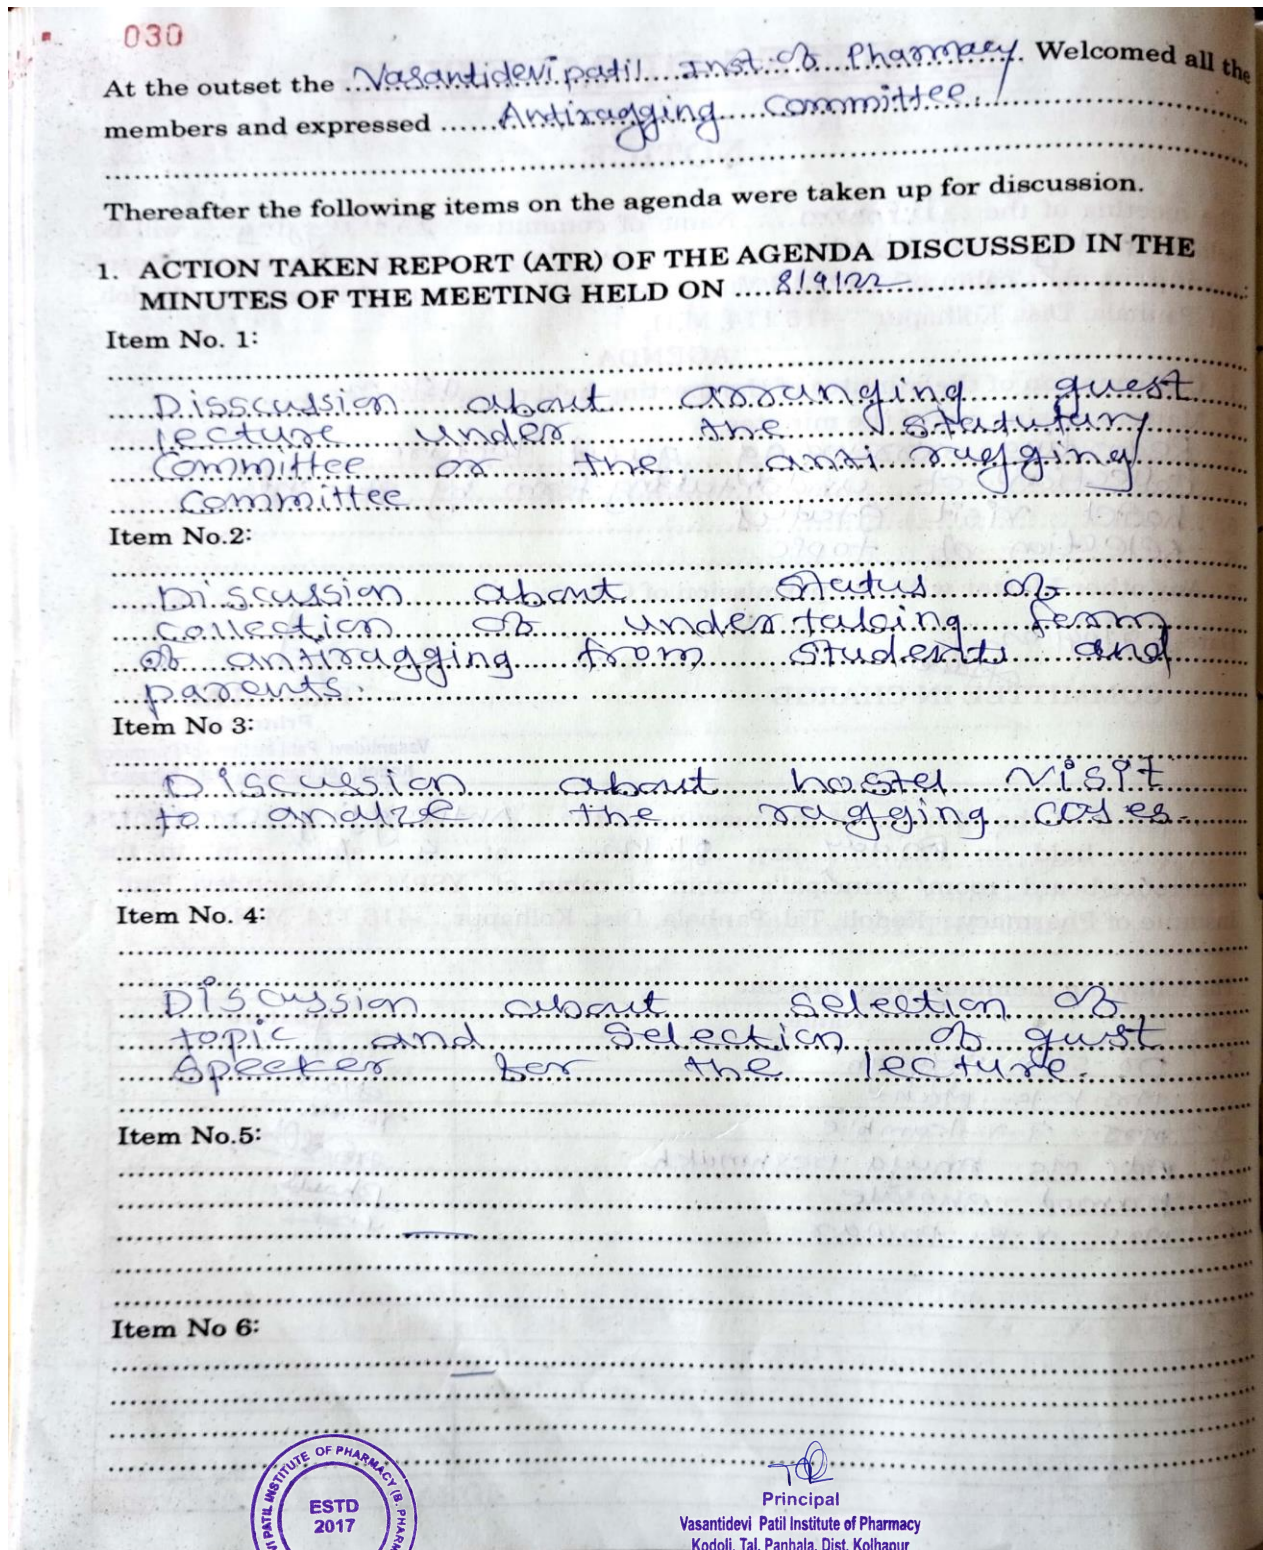 030
At the outset the Vasantidevi patil Inst. of Pharmacy. Welcomed all the
members and expressed Antiragging Committee.
Thereafter the following items on the agenda were taken up for discussion.
1. ACTION TAKEN REPORT (ATR) OF THE AGENDA DISCUSSED IN THE
MINUTES OF THE MEETING HELD ON 8/9/22
Item No. 1:
Disscudsion about arranging guest
lecture under the Stadutary
Committee or the anti ragging
Committee
Item No.2:
Discussion about Status of
collection of undertaking form
of antiragging from students and
parents.
Item No 3:
Discussion about hostel visit
to analyze the ragging cases.
Item No. 4:
Discussion about selection of
topic and Selection of gust
Speeker for the lecture.
Item No.5:
Item No 6:
PATIL INSTITUTE OF PHARMACY (B. PHARM
ESTD
2017
Principal
Vasantidevi Patil Institute of Pharmacy
Kodoli, Tal. Panhala, Dist. Kolhapur